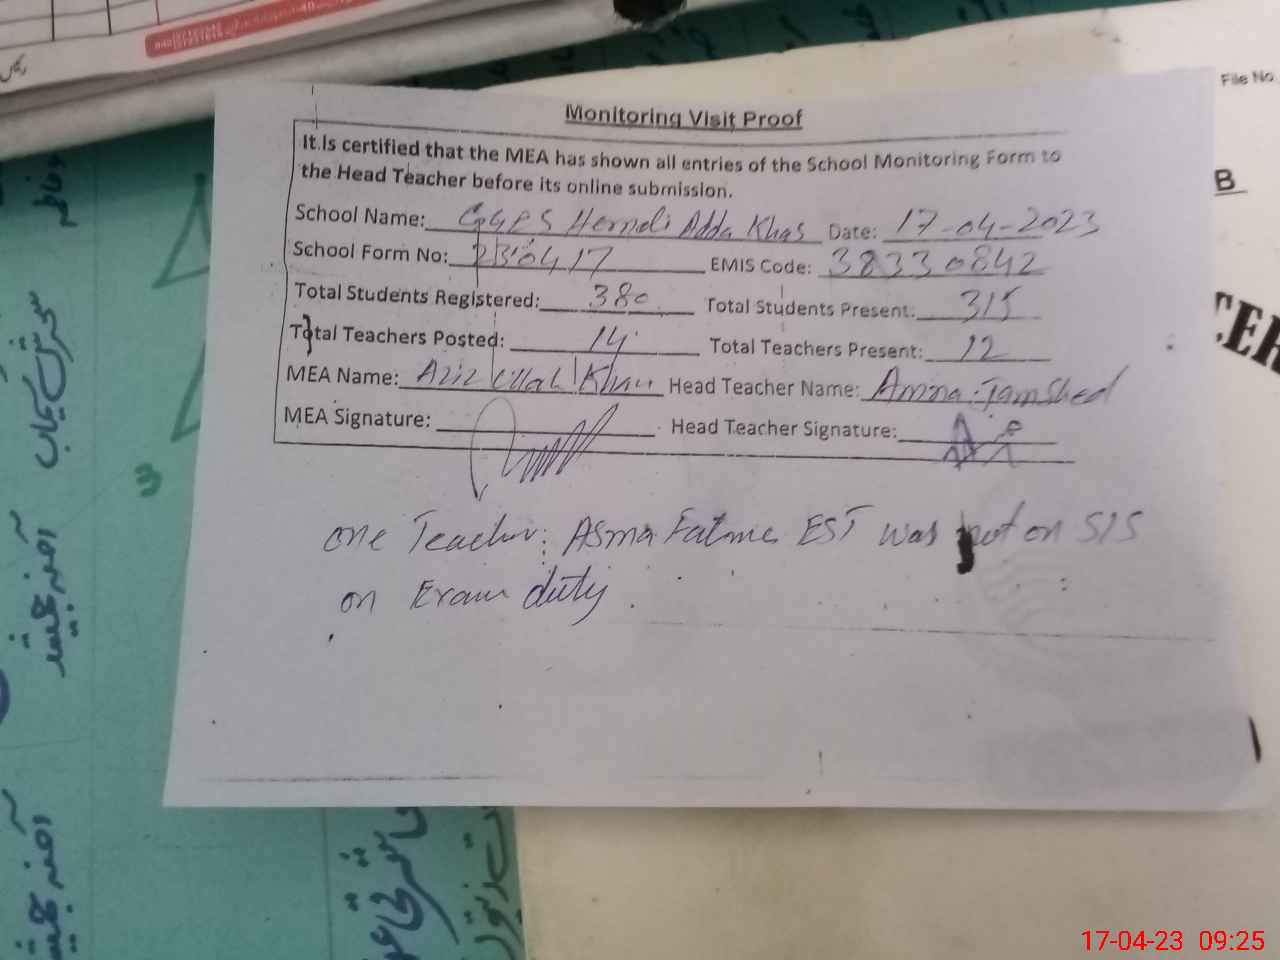 File No
Monitoring Visit Proof
It Is certified that the MEA has shown all entries of the School Monitoring Form to
the Head Teacher before its online submission.
School Name: GGES Herndi Adda Khas Date: 17-04-2023
School Form No: 2310417 EMIS Code: 38330842
Total Students Registered: 380 Total Students Present: 315
Total Teachers Posted: 14 Total Teachers Present: 12
MEA Name: Aziz Ullah Khan Head Teacher Name: Amna Jamshed
MEA Signature: Head Teacher Signature:
one Teacher: Asma Fatma EST was not on SIS
on Exam duty.
B
CER
آمنہ
آمنہ
17-04-23 09:25